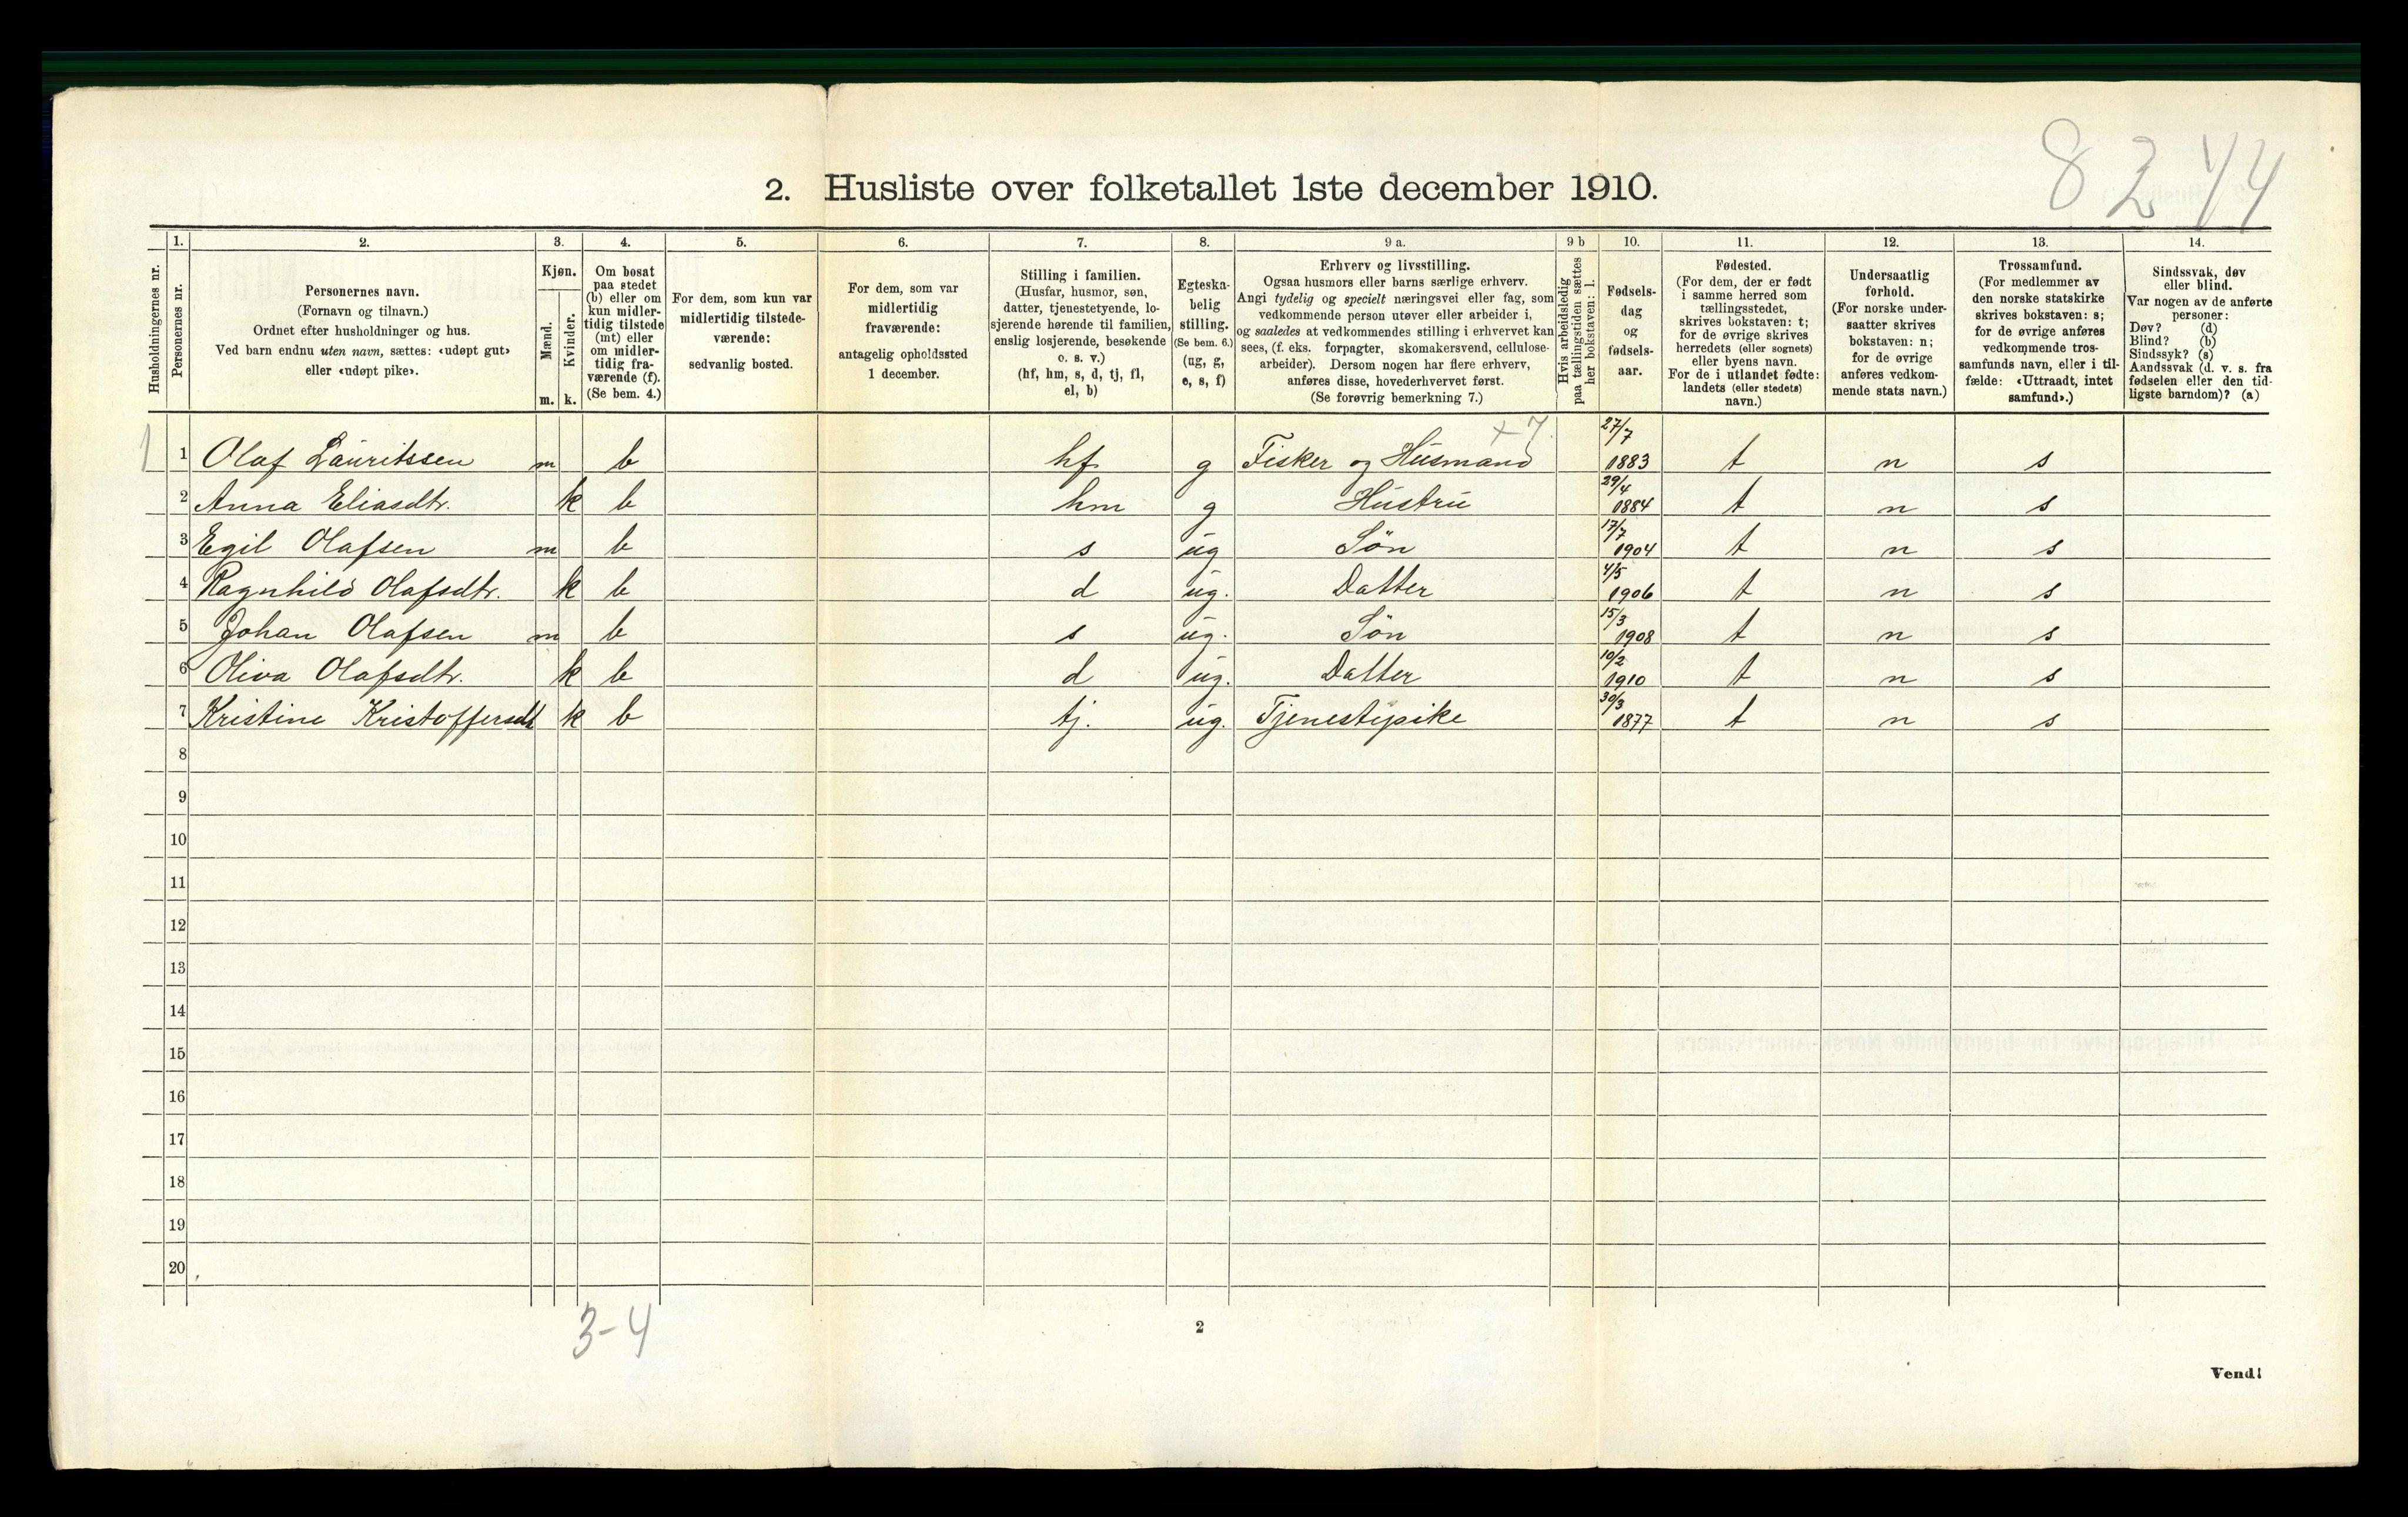 8244
2. Husliste over folketallet 1ste december 1910.
Husholdningernes nr.
1.
Personernes nr.
2.
Personernes navn.
(Fornavn og tilnavn.)
Ordnet efter husholdninger og hus.
Ved barn endnu uten navn, sættes: «udøpt gut»
eller «udøpt pike».
3.
Kjøn.
Mænd.
Kvinder.
m. k.
4.
Om bosat
paa stedet
(b) eller om
kun midler-
tidig tilstede
(mt) eller
om midler-
tidig fra-
værende (f).
(Se bem. 4.)
5.
For dem, som kun var
midlertidig tilstede-
værende:
sedvanlig bosted.
6.
For dem, som var
midlertidig
fraværende:
antagelig opholdssted
1 december.
7.
Stilling i familien.
(Husfar, husmor, søn,
datter, tjenestetyende, lo-
sjerende hørende til familien,
enslig losjerende, besøkende
o. s. v.)
(hf, hm, s, d, tj, fl,
el, b)
8.
Egteska-
belig
stilling.
(Se bem. 6.)
(ug, g,
e, s, f)
9 a.
Erhverv og livsstilling.
Ogsaa husmors eller barns særlige erhverv.
Angi tydelig og specielt næringsvei eller fag, som
vedkommende person utøver eller arbeider i,
og saaledes at vedkommendes stilling i erhvervet kan
sees, (f. eks. forpagter, skomakersvend, cellulose-
arbeider). Dersom nogen har flere erhverv,
anføres disse, hovederhvervet først.
(Se forøvrig bemerkning 7.)
9 b
Hvis arbeidsledig
paa tællingstiden sættes
her bokstaven: l.
10.
Fødsels-
dag
og
fødsels-
aar.
11.
Fødested.
(For dem, der er født
i samme herred som
tællingsstedet,
skrives bokstaven: t;
for de øvrige skrives
herredets (eller sognets)
eller byens navn.
For de i utlandet fødte:
landets (eller stedets)
navn.)
12.
Undersaatlig
forhold.
(For norske under-
saatter skrives
bokstaven: n;
for de øvrige
anføres vedkom-
mende stats navn.)
13.
Trossamfund.
(For medlemmer av
den norske statskirke
skrives bokstaven: s;
for de øvrige anføres
vedkommende tros-
samfunds navn, eller i til-
fælde: «Uttraadt, intet
samfund».)
14.
Sindssvak, døv
eller blind.
Var nogen av de anførte
personer:
Døv? (d)
Blind? (b)
Sindssyk? (s)
Aandssvak (d. v. s. fra
fødselen eller den tid-
ligste barndom)? (a)
+7.
1 1 Olaf Lauritssen m b hf g Fisker og Husmand 27/7 1883 t n s
2 Anna Eliasdtr. k b hm g Hustru 29/4 1884 t n s
3 Egil Olafsen m b s ug Søn 17/7 1904 t n s
4 Ragnhild Olafsdtr. k b d ug. Datter 4/5 1906 t n s
5 Johan Olafsen m b s ug. Søn 15/3 1908 t n s
6 Oliva Olafsdtr. k b d ug. Datter 10/2 1910 t n s
7 Kristine Kristoffersdt k b tj. ug. Tjenestepike 30/3 1877 t n s
8
9
10
11
12
13
14
15
16
17
18
19
20
3-4
2
Vend!